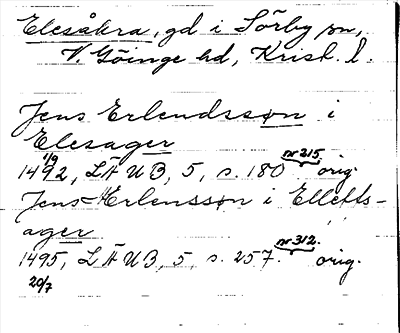 Elesåkra, gd i Sörby sn,
V. Göinge hd, Krist. l.
Jens Erlendssøn i
Elesager
1492, LÄUB, 5, s. 180 orig.
1/9 nr 215.
Jens Erlenssøn i Elletts-
ager
1495, LÄUB, 5, s. 257. orig.
20/7 nr 312.